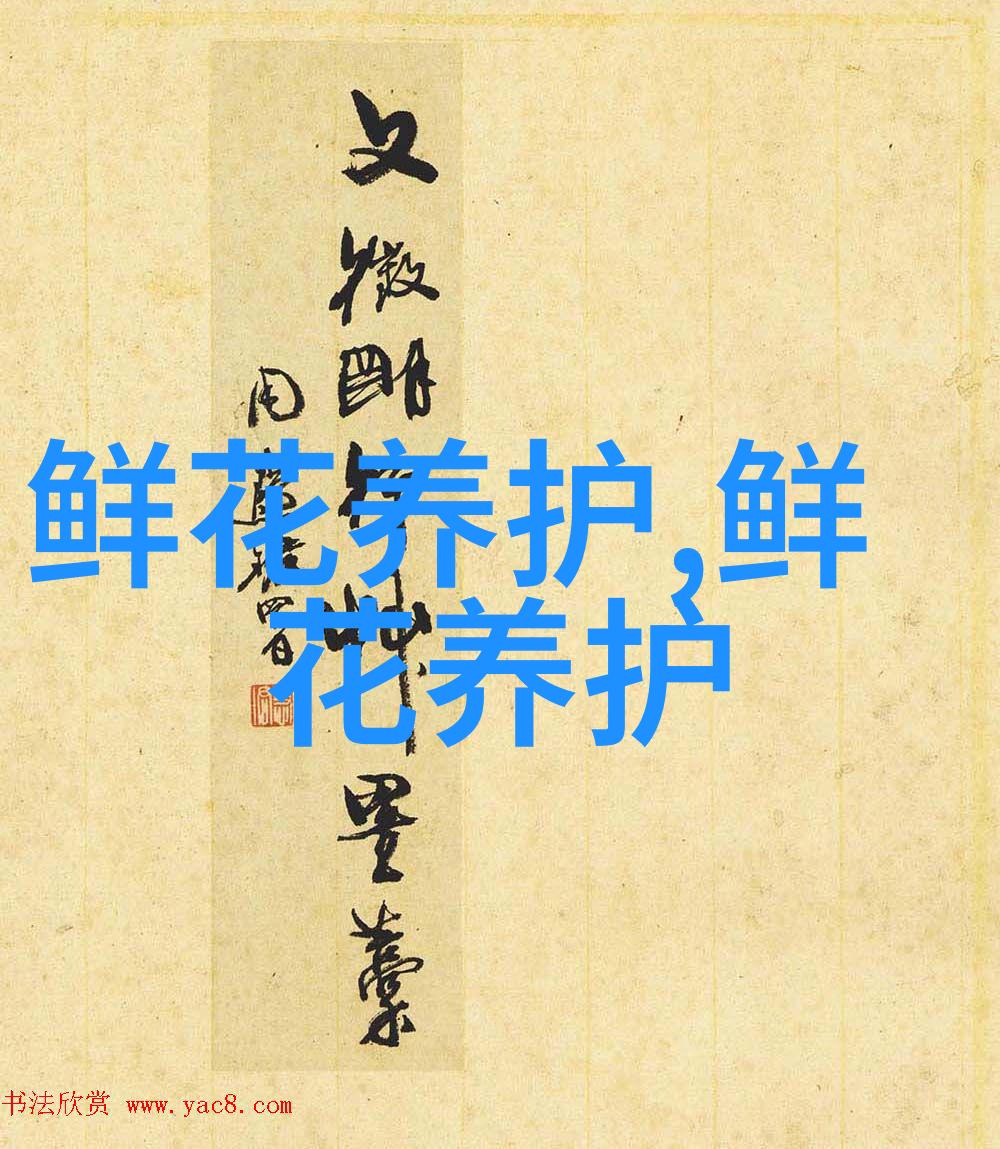 鲜花养护,鲜
花养护
文徵明行草墨藁
书法欣赏 www.yac8.com